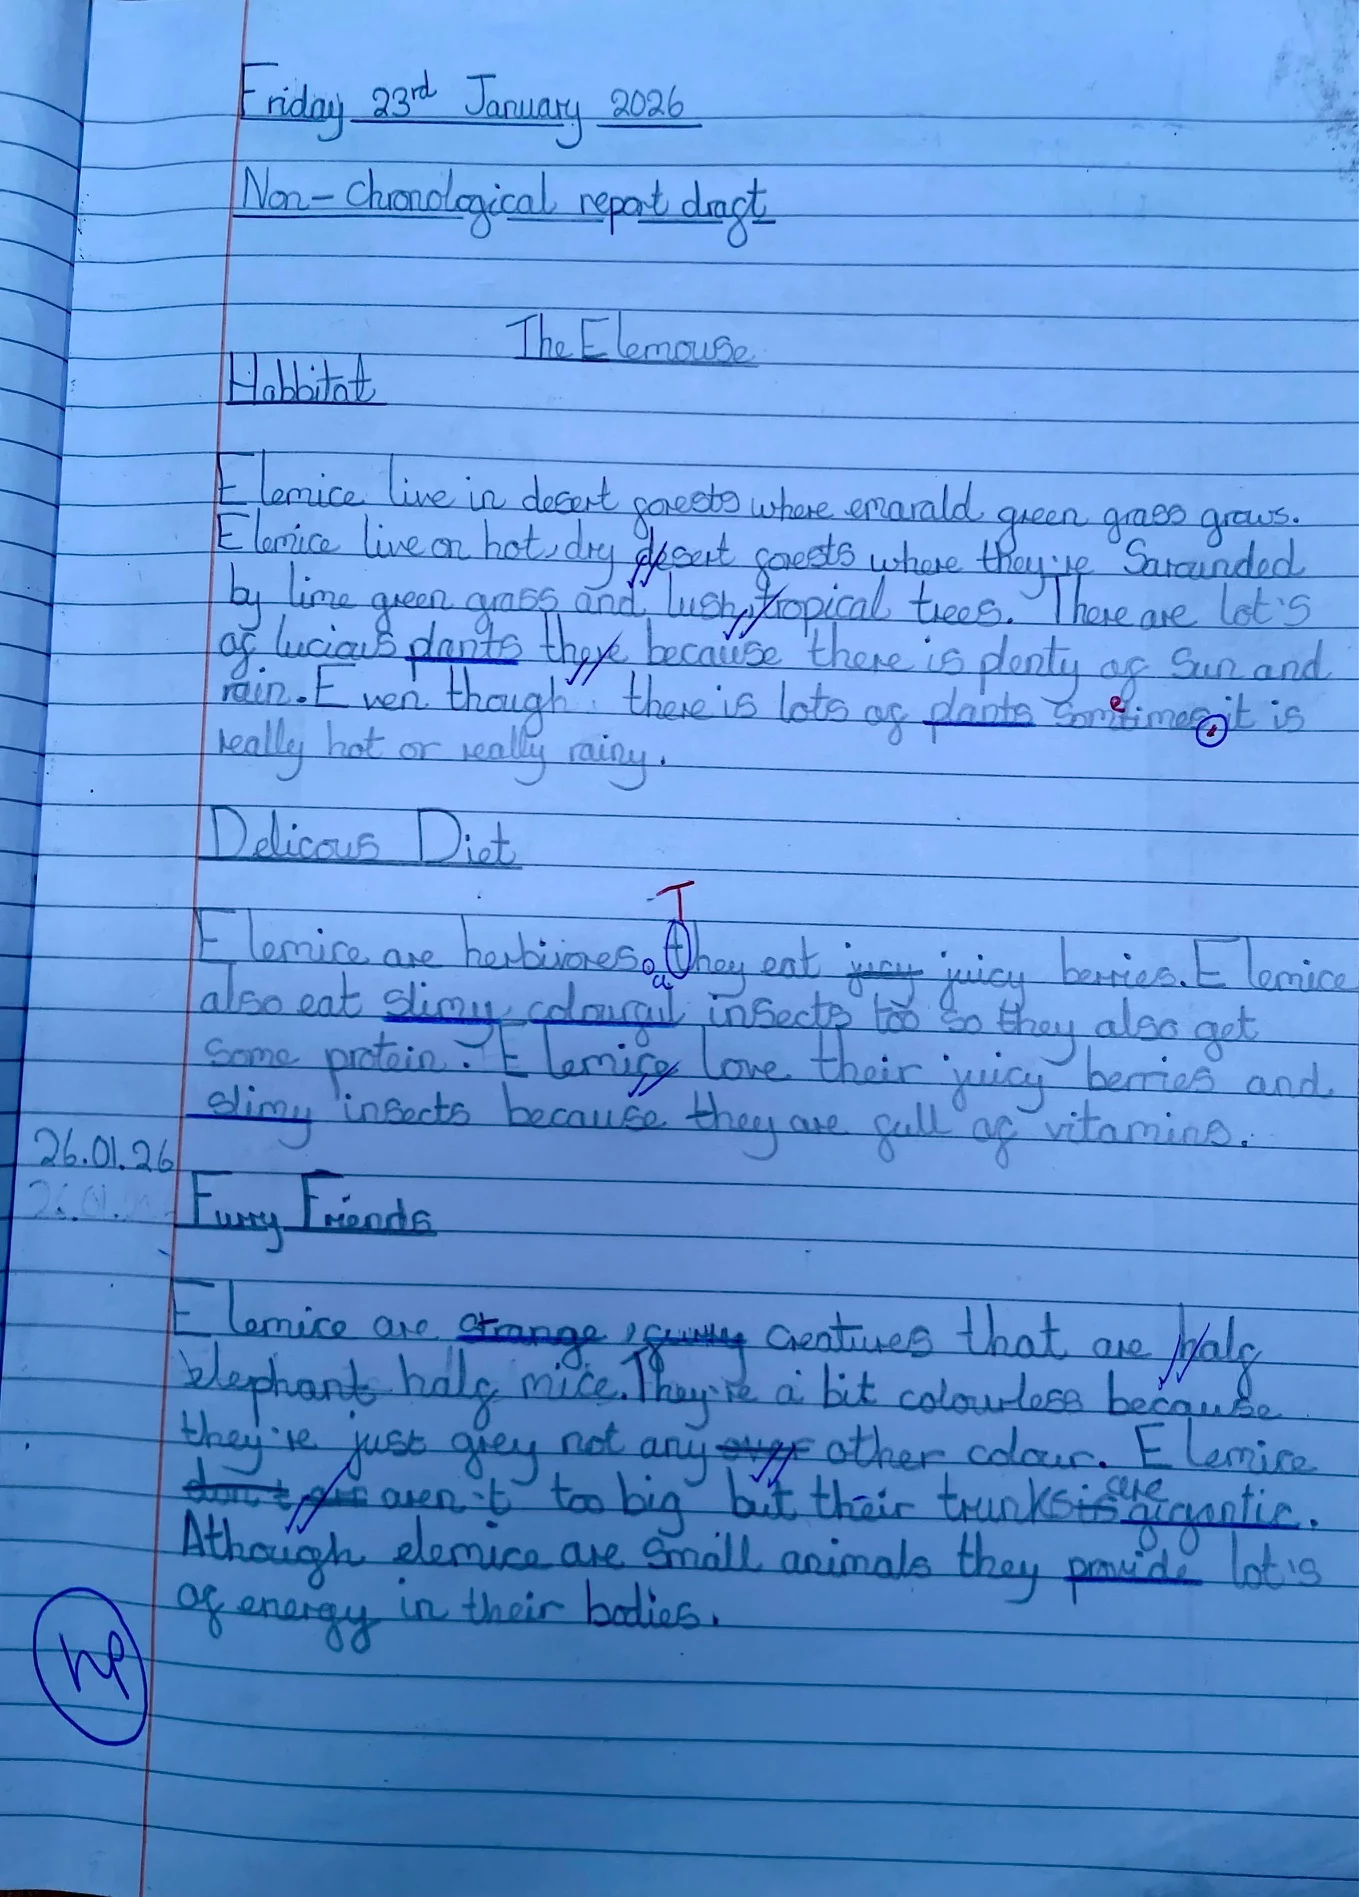 Friday 23rd January 2026
Non-Chronological report draft
The Elemouse
Habbitat
Elemice live in desert forests where emarald green grass grows.
Elemice live on hot, dry desert forests where they're Sarounded
by lime green grass and lush, tropical trees. There are lot's
of lucious plants there because there is plenty of Sun and
rain. Even though there is lots of plants sometimes, it is
really hot or really rainy.
Delicous Diet
T
Elemice are herbivores. they eat juicy juicy berries. Elemice
also eat slimy colourful insects too so they also get
some protein. Elemice love their juicy berries and
slimy insects because they are full of vitamins.
26.01.26
26.01.
Furry Friends
Elemice are strange, creatures that are half
elephant half mice. They're a bit colourless because
they're just grey not any other colour. Elemice
don't aren't too big but their trunks is are gigantic.
Athough elemice are small animals they provide lot's
of energy in their bodies.